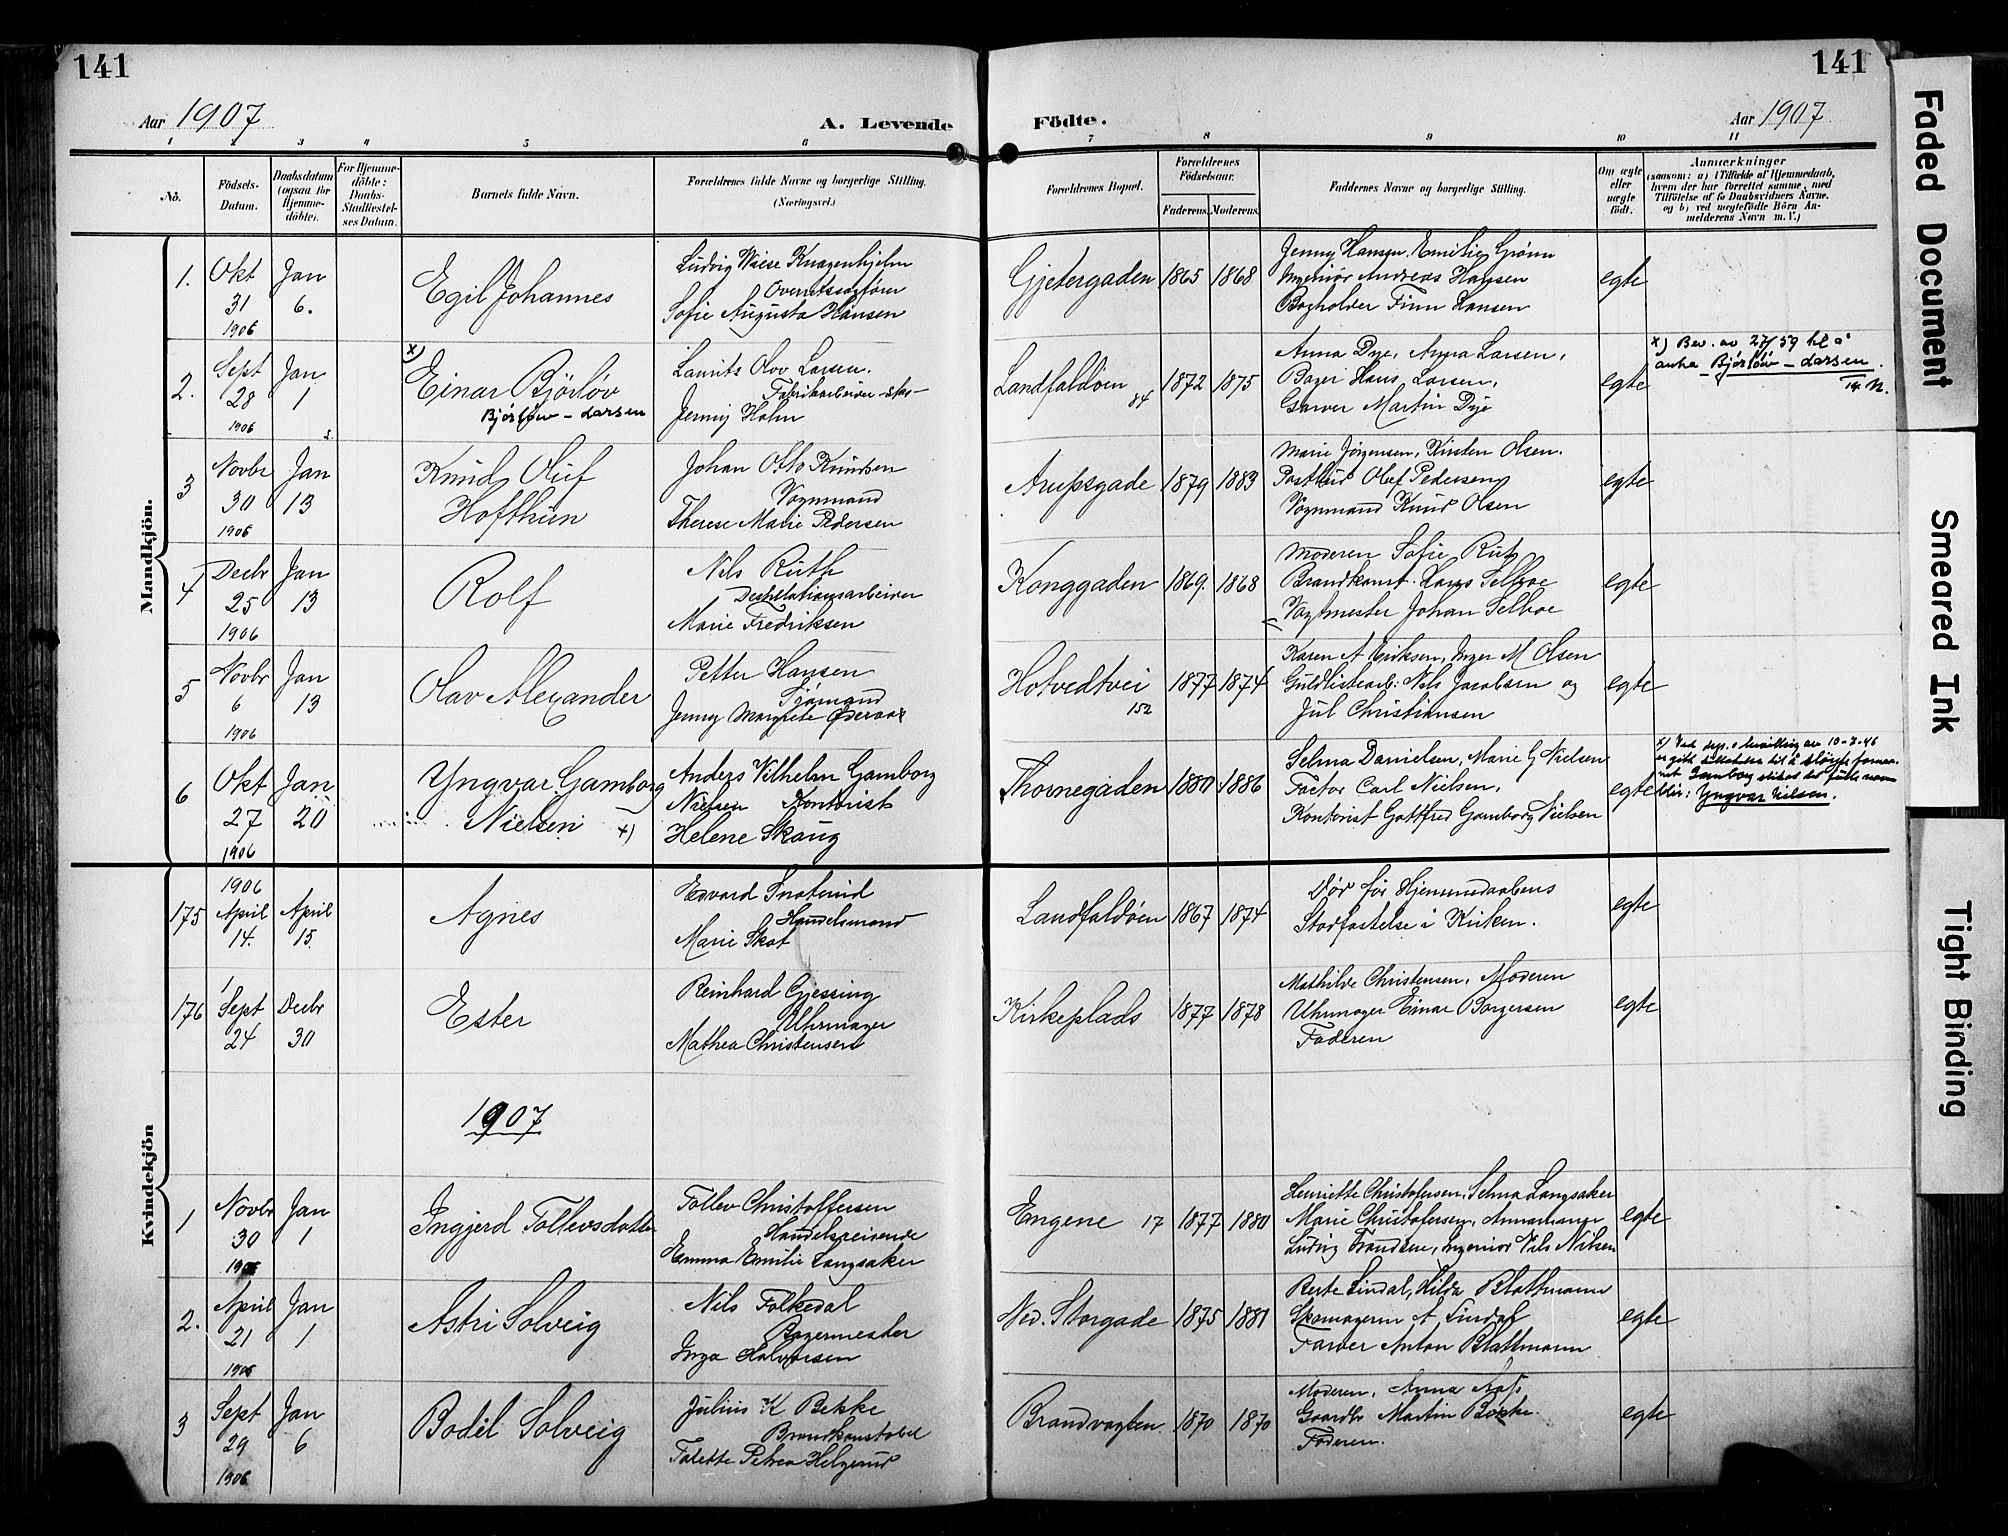 141
141
Aar 1907
A. Levende
Födte.
Aar 1907.
1 2 3 4 5 6 7 8 9 10 11
No.
Födsels-Datum.
Daabsdatum (ogsaa for Hjemme-döbte).
For Hjemme-döbte: Daabs-Stadfæstel-ses Datum.
Barnets fulde Navn.
Forældrenes fulde Navne og borgerlige Stilling.
(Næringsvei.)
Forældrenes Bopæl.
Forældrenes Födselsaar.
Faderens. Moderens.
Faddernes Navne og borgerlige Stilling.
Om ægte eller uægte født.
Anmærkninger
(saasom: a) i Tilfælde af Hjemmedaab,
hvem der har forrettet samme, med
Tilföielse af to Daabsvidners Navne.
og b) ved uægtefödte Börn An-
melderens Navn m. V.)
Mandkjön.
1. Okt 31 1906
Jan 6.
Egil Johannes
Ludvig Wiese Knagenhjelm
Overretssagfører
Sofie Augusta Hansen
Gjetergaden
1865 1868
Jenny Hansen, Emilie Grønn
Ingeniør Andreas Hansen
Bogholder Finn Hansen
egte
2. Sept 28 1906
Jan 1
x)
Einar Bjørløv
Bjørløw - Larsen
Laurits Olov Larsen.
Fabrikarbeider
Jenny Holm
Landfaldøen 84
1872 1875
Anna Dye, Anna Larsen,
Bager Hans Larsen,
Garver Martin Dye
egte
x) Bev. av 27/ 59 til å
anta Bjørløw - Larsen.
3 Novbr 30 1906
Jan 13
Knud Oluf
Hofthun
Johan Otto Knudsen
Vognmand
Therese Marie Pedersen
Arupsgade
1879 1883
Marie Jørgensen, Kirsten Olsen.
Postbud Oluf Pedersen
Vognmand Knud Olsen
egte
4 Decbr 25 1906
Jan 13
Rolf
Nils Ruth
Destillationsarbeider
Marie Fredriksen
Konggaden
1869. 1868
Moderen Sofie Ruth
Brandkonst. Lars Selboe
Vagtmester Johan Selboe
egte
5 Novbr 6 1906
Jan 13
Olav Alexander
Petter Hansen
Sjømand
Jenny Margrete
Hotvedtvei 152
1877 1874
Karen A Eriksen, Inger M Olsen
Guldlistearb: Nils Jacobsen og
Jul Christiansen
egte
6 Okt 27 1906
Jan 20
Yngvar Gamborg
Nielsen x)
Anders Vilhelm Gamborg
Nielsen Kontorist
Helene Skaug
Thornegaden
1880 1886
Selma Danielsen, Marie G Nielsen
Factor Carl Nielsen,
Kontorist Gottfred Gamborg Nielsen
egte
x) Ved dep.s bevilling av 10-7-46
er gitt tillatelse til å sløyfe fornav-
net Gamborg slik at det fulle navn
blir: Yngvar Nielsen.
Kvindekjön
175 1906 April 14.
April 15.
Agnes
Edvard
Handelsmand
Marie Skot
Landfaldøen
1867 1874
Død før Hjemmedaabens
Stadfæstelse i Kirken.
egte
176 Sept 24
Decbr 30
Ester
Reinhard Gjessing
Uhrmager
Mathea Christensen
Kirkeplads
1877 1878
Mathilde Christensen, Moderen
Uhrmager Einar Borgersen
Faderen
egte
1907
1 Novbr 30 1906
Jan 1
Ingjerd Tollevsdatter
Tollev Christoffersen
Handelsreisende
Emma Emilie Langsaker
Engene 17
1877 1880
Henriette Christofersen, Selma Langsaker
Marie Christofersen,
Ludvig Frandsen, Ingeniør Nils Nilsen
egte
2. April 21 1906
Jan 1
Astri Solveig
Nils Folkedal
Bagermester
Inga Halvorsen
Ned. Storgade
1875 1881
Berte Lindal, Hilda Blattmann
Skomagerm A Lindal
Farver Anton Blattmann
egte
3 Sept 29 1906
Jan 6
Bodil Solveig
Julius K Bekke
Brandkonstabel
Talette Petrea
Brandvagten
1870 1870
Moderen, Anna Aas.
Gaardbr Martin Bekke.
Faderen.
egte
Faded Document
Smeared Ink
Tight Binding